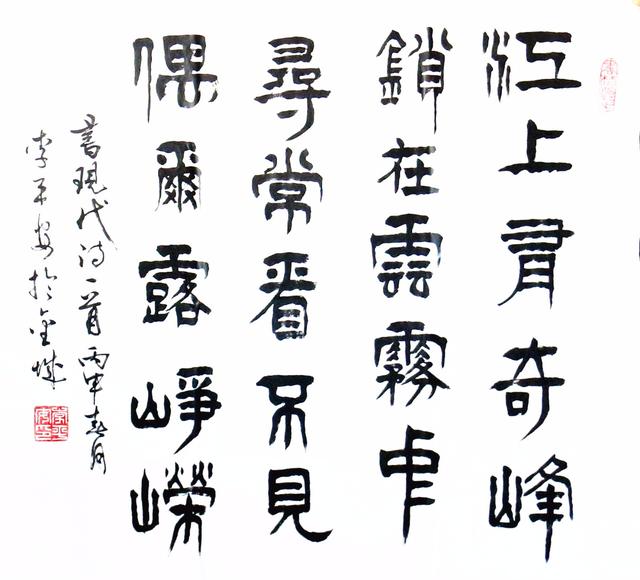 江上有奇峰
鎖在雲霧中
尋常看不見
偶爾露崢嶸
書現代詩一首丙申春月
李平安於金城